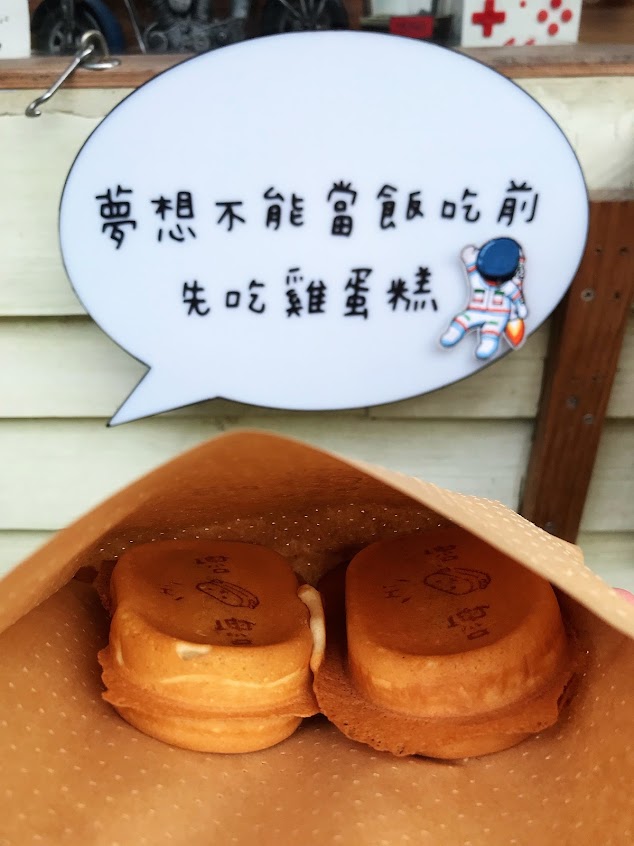 夢想不能當飯吃前
先吃雞蛋糕